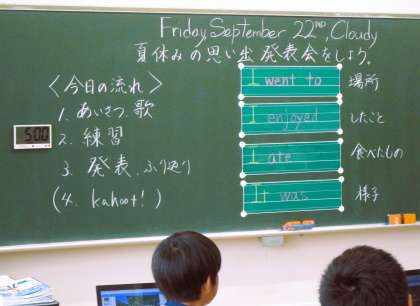 Friday September 22ND, Cloudy
夏休みの思い出発表会をしよう。
<今日の流れ>
1. あいさつ、歌
2. 練習
3. 発表、ふり返り
(4. kahoot!)
5:00
I went to 場所
I enjoyed したこと
I ate 食べたもの
It was 様子